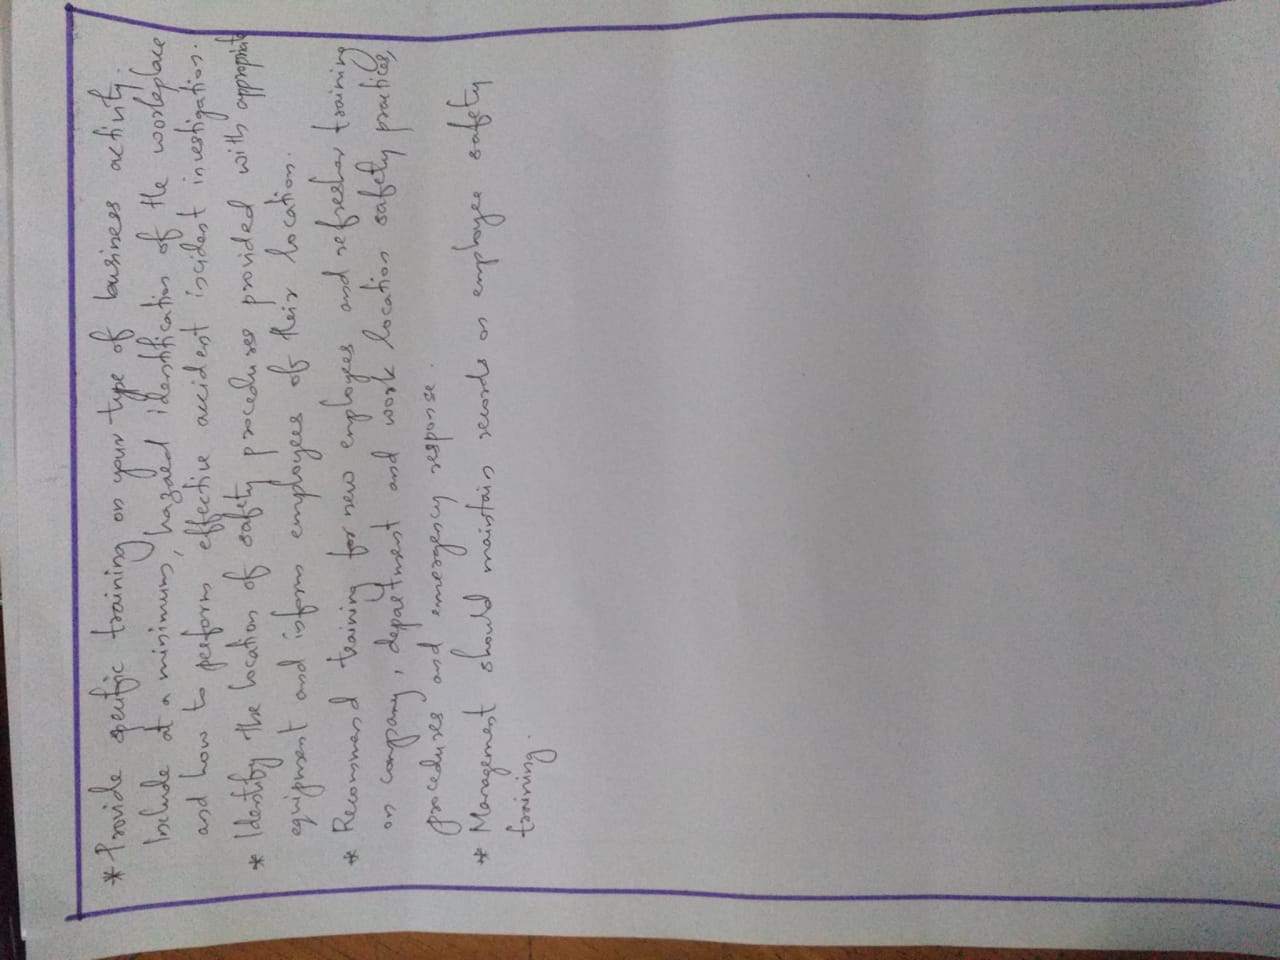 * Provide specific training on your type of business activity.
Include at a minimum, hazard identification of the workplace
and how to perform effective accident incident investigation.
* Identify the location of safety procedures provided with appropriate
equipment and inform employees of their location.
* Recommend training for new employees and refresher training
on company, department and work location safety practices,
procedures and emergency response.
* Management should maintain records on employee safety
training.